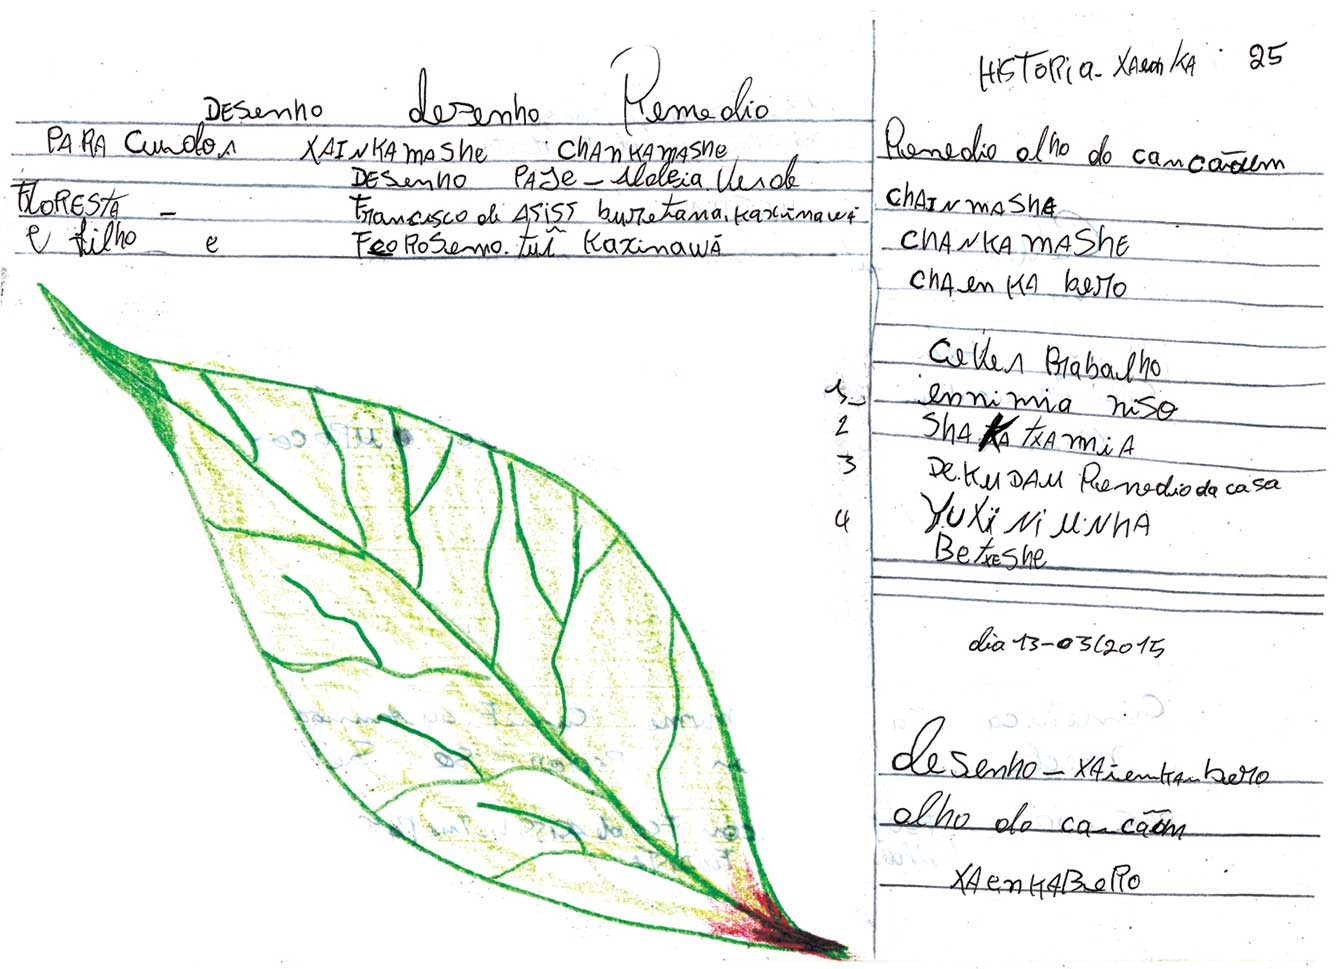 DESenho desenho Remedio
PARA Cundor XAINKAMAShe ChANKAMAShe
DESenho PAJE - Aldeia Verde
FLORESTA - Francisco di ASiSS burretana. Kaxinawá
e filho e Fco Rosemo. tuî Kaxinawá
HiSTORiA - XAenKA 25
Remedio olho do cancãoem
ChAINMAShe
ChANKAMAShe
ChAenKA bero
Brabalho
1_ ennimia niso
2 ShAKA txAMiA
3 De.KUDAU Remedio da casa
4 YUXi Ni UNhA
Betxeshe
dia 13-03/2015
desenho - XAienKAnbero
olho do ca-cãom
XAenKABeRo